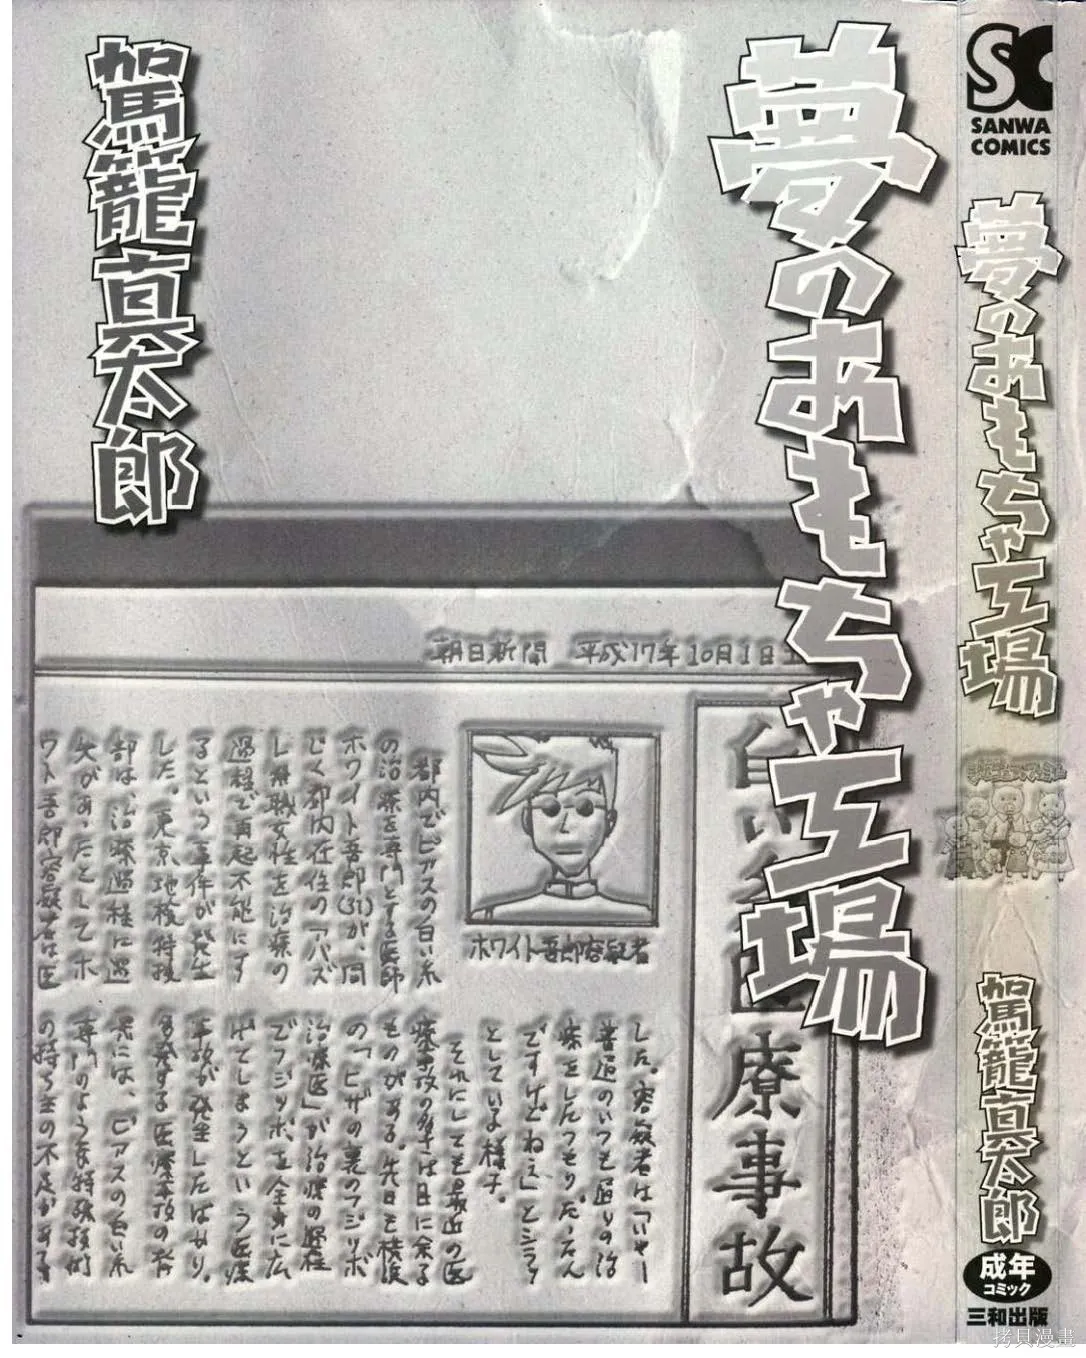 夢のおもちゃ工場
駕籠真太郎
朝日新聞 平成17年10月1日
白い糸医療事故
ホワイト吾郎容疑者
都内でピアスの白い糸
の治療を専門とする医師
ホワイト吾郎(31)が、同
じく都内在住の「バズ
し無職女性を治療の
過程で再起不能にす
るという事件が発生
した。東京地検特捜
部は、治療過程に過
失があったとしてホ
ワイト吾郎容疑者は医
した。容疑者は「いやー
普通のいつも通りの治
療をしたつもりだったん
ですけどねえ」とシラッ
としている様子。
それにしても最近の医
療事故の多さは目に余る
ものがある。先日も横浜
の「ヒザの裏のフジツボ
治療医」が治療の過程
でフジツボを全身に広
げてしまうという医療
事故が発生したばかり。
多発する医療事故の背
景には、ピアスの白い糸
専門のような特殊技術
の持ち主の不足がある
SC
SANWA
COMICS
夢のおもちゃ工場
駕籠真太郎
成年
コミック
三和出版
拷貝漫畫